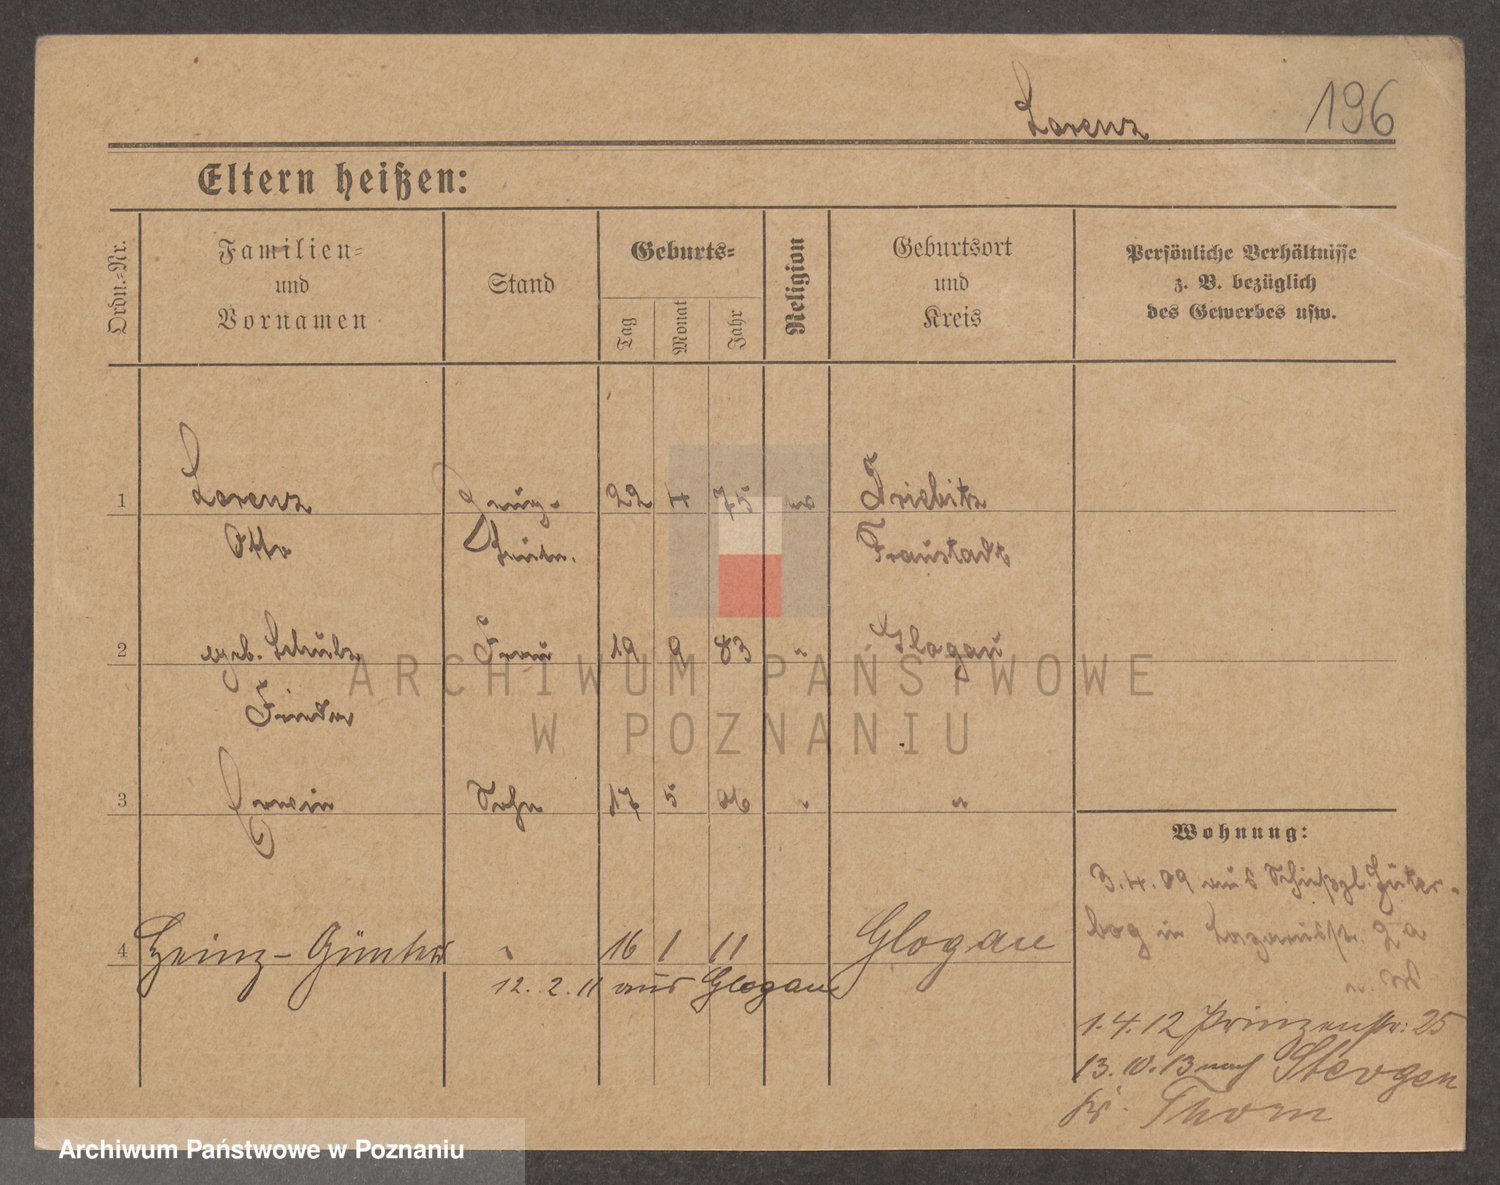 Lorenz 196
Eltern heißen:
Ordn.-Nr.
Familien-
und
Vornamen
Stand
Geburts-
Tag
Monat
Jahr
Religion
Geburtsort
und
Kreis
Persönliche Verhältnisse
z. B. bezüglich
des Gewerbes usw.
1 Lorenz Zeug- 22 4 75 ev Driebitz
Otto Leutn. Fraustadt
2 geb. Schulz Frau 19 9 83 " Glogau
Frieda
3 Erwin Sohn 17 5 06 " "
Wohnung:
3.4.09 aus Schießpl. Jüter-
bog in Lazarusstr. 2a
4 Heinz-Günther " 16 1 11 Glogau
12. 2. 11 aus Glogau
1.4.12 Prinzenstr. 25
13.10.13 nach
Kr. Thorn
ARCHIWUM PAŃSTWOWE
W POZNANIU
Archiwum Państwowe w Poznaniu